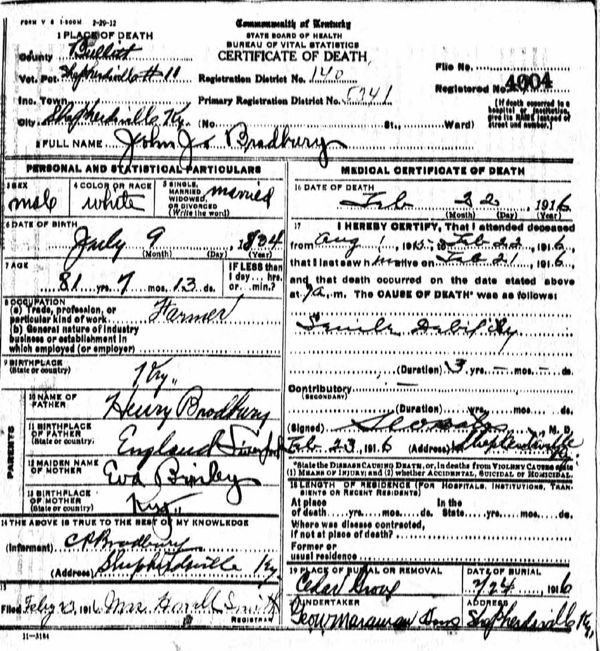 FORM V S 1-500M 2-29-12
Commonwealth of Kentucky
STATE BOARD OF HEALTH
BUREAU OF VITAL STATISTICS
CERTIFICATE OF DEATH
1 PLACE OF DEATH
County Bullitt
Vot. Pct. Shepherdsville #11
Registration District No. 140
File No.
Inc. Town
Primary Registration District No. 5241
Registered No. 4004
City Shepherdsville Ky. (No. St., Ward)
(If death occurred in a hospital or institution, give its NAME instead of street and number.)
2 FULL NAME John J. Bradbury
PERSONAL AND STATISTICAL PARTICULARS
3 SEX male
4 COLOR OR RACE white
5 SINGLE, MARRIED, WIDOWED, OR DIVORCED (Write the word) married
6 DATE OF BIRTH
July 9, 1834
(Month) (Day) (Year)
7 AGE
81 yrs. 7 mos. 13 ds.
IF LESS than 1 day.... hrs. or.... min.?
8 OCCUPATION
(a) Trade, profession, or particular kind of work Farmer
(b) General nature of industry business or establishment in which employed (or employer)
9 BIRTHPLACE
(State or country) Ky.
PARENTS
10 NAME OF FATHER Henry Bradbury
11 BIRTHPLACE OF FATHER (State or country) England
12 MAIDEN NAME OF MOTHER Eva
13 BIRTHPLACE OF MOTHER (State or country) Ky.
14 THE ABOVE IS TRUE TO THE BEST OF MY KNOWLEDGE
(Informant) Bradbury
(Address) Shepherdsville Ky
15
Filed 1916 Mrs. Smith
REGISTRAR
11-3184
MEDICAL CERTIFICATE OF DEATH
16 DATE OF DEATH
Feb 22, 1916
(Month) (Day) (Year)
17 I HEREBY CERTIFY, That I attended deceased
from Aug 1, 1915 to Feb 22, 1916,
that I last saw him alive on Feb 21, 1916,
and that death occurred on the date stated above
at m. The CAUSE OF DEATH* was as follows:
Senile Debility
(Duration) 3 yrs. – mos. – ds.
Contributory –
(SECONDARY)
(Duration) yrs. mos. ds.
(Signed) M. D.
Feb. 23, 1916 (Address) Shepherdsville Ky.
*State the DISEASE CAUSING DEATH, or, in deaths from VIOLENT CAUSES state (1) MEANS OF INJURY; and (2) whether ACCIDENTAL, SUICIDAL or HOMICIDAL.
18 LENGTH OF RESIDENCE (FOR HOSPITALS, INSTITUTIONS, TRANSIENTS OR RECENT RESIDENTS)
At place of death yrs. mos. ds. In the State yrs. mos. ds.
Where was disease contracted, if not at place of death?
Former or usual residence
19 PLACE OF BURIAL OR REMOVAL
Cedar Grove
DATE OF BURIAL
2/24, 1916
20 UNDERTAKER
Geo W Maraman Sons
ADDRESS
Shepherdsville Ky.